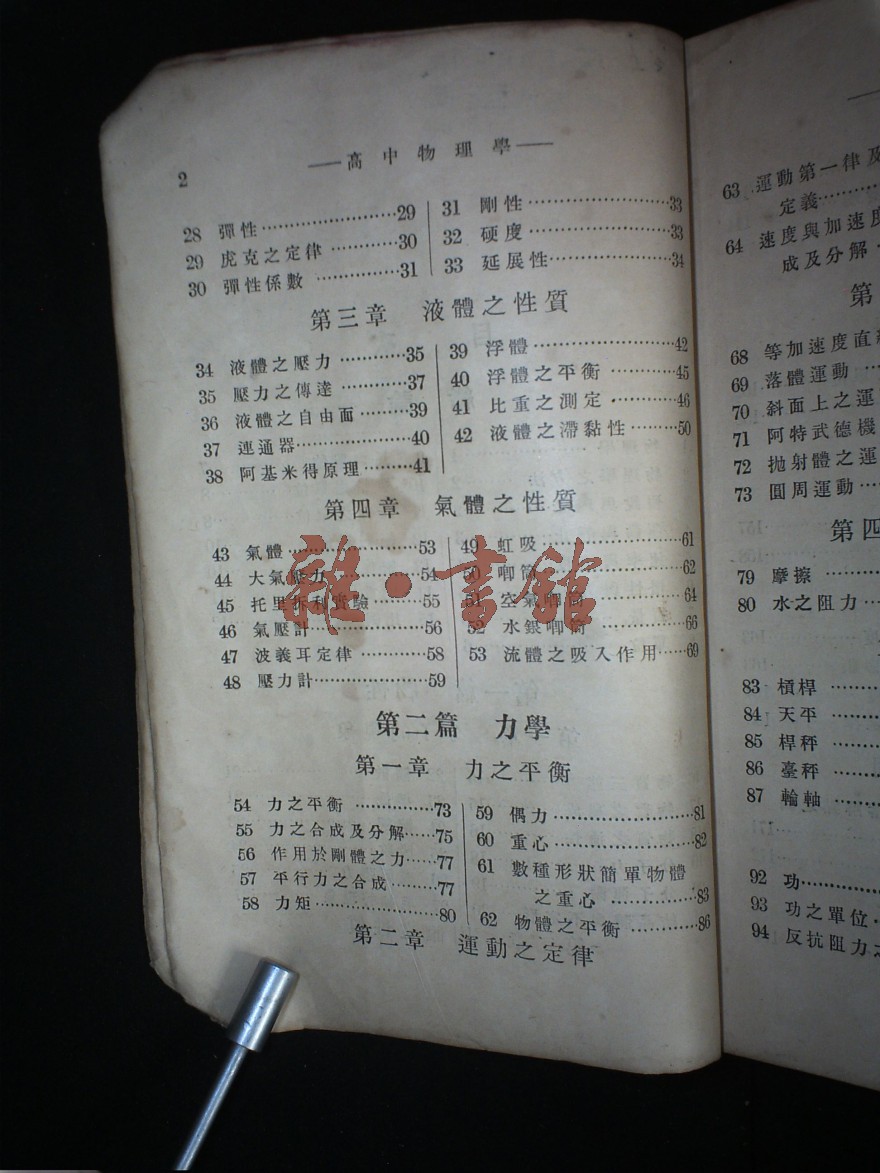 2
高中物理學
28 彈性 29
29 虎克之定律 30
30 彈性係數 31
31 剛性 33
32 硬度 33
33 延展性 34
第三章 液體之性質
34 液體之壓力 35
35 壓力之傳達 37
36 液體之自由面 39
37 連通器 40
38 阿基米得原理 41
39 浮體 42
40 浮體之平衡 45
41 比重之測定 46
42 液體之滯黏性 50
第四章 氣體之性質
43 氣體 53
44 大氣壓力 54
45 托里拆利實驗 55
46 氣壓計 56
47 波義耳定律 58
48 壓力計 59
49 虹吸 61
50 唧筒 62
51 空氣唧筒 64
52 水銀唧筒 66
53 流體之吸入作用 69
雜·書館
第二篇 力學
第一章 力之平衡
54 力之平衡 73
55 力之合成及分解 75
56 作用於剛體之力 77
57 平行力之合成 77
58 力矩 80
59 偶力 81
60 重心 82
61 數種形狀簡單物體
之重心 83
62 物體之平衡 86
第二章 運動之定律
63 運動第一律及
定義
64 速度與加速度
成及分解
第
68 等加速度直
69 落體運動
70 斜面上之運
71 阿特武德機
72 拋射體之運
73 圓周運動
第四
79 摩擦
80 水之阻力
83 槓桿
84 天平
85 桿秤
86 臺秤
87 輪軸
92 功
93 功之單位
94 反抗阻力之